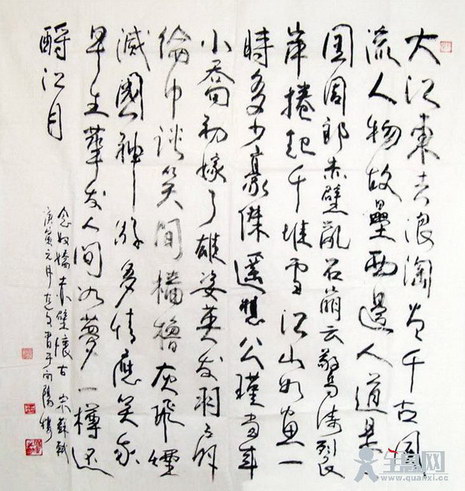 大江東去浪淘尽千古風
流人物故壘西邊人道是
国周郎赤壁亂石崩云驚濤裂
岸捲起千堆雪江山如畫一
時多少豪傑遥想公瑾當年
小喬初嫁了雄姿英发羽扇
綸巾談笑間檣櫓灰飛煙
滅國神游多情應笑我
早生華发人間如夢一樽还
酹江月
念奴嬌赤壁懷古 宋蘇軾
庚寅元月
www.quanxi.cc